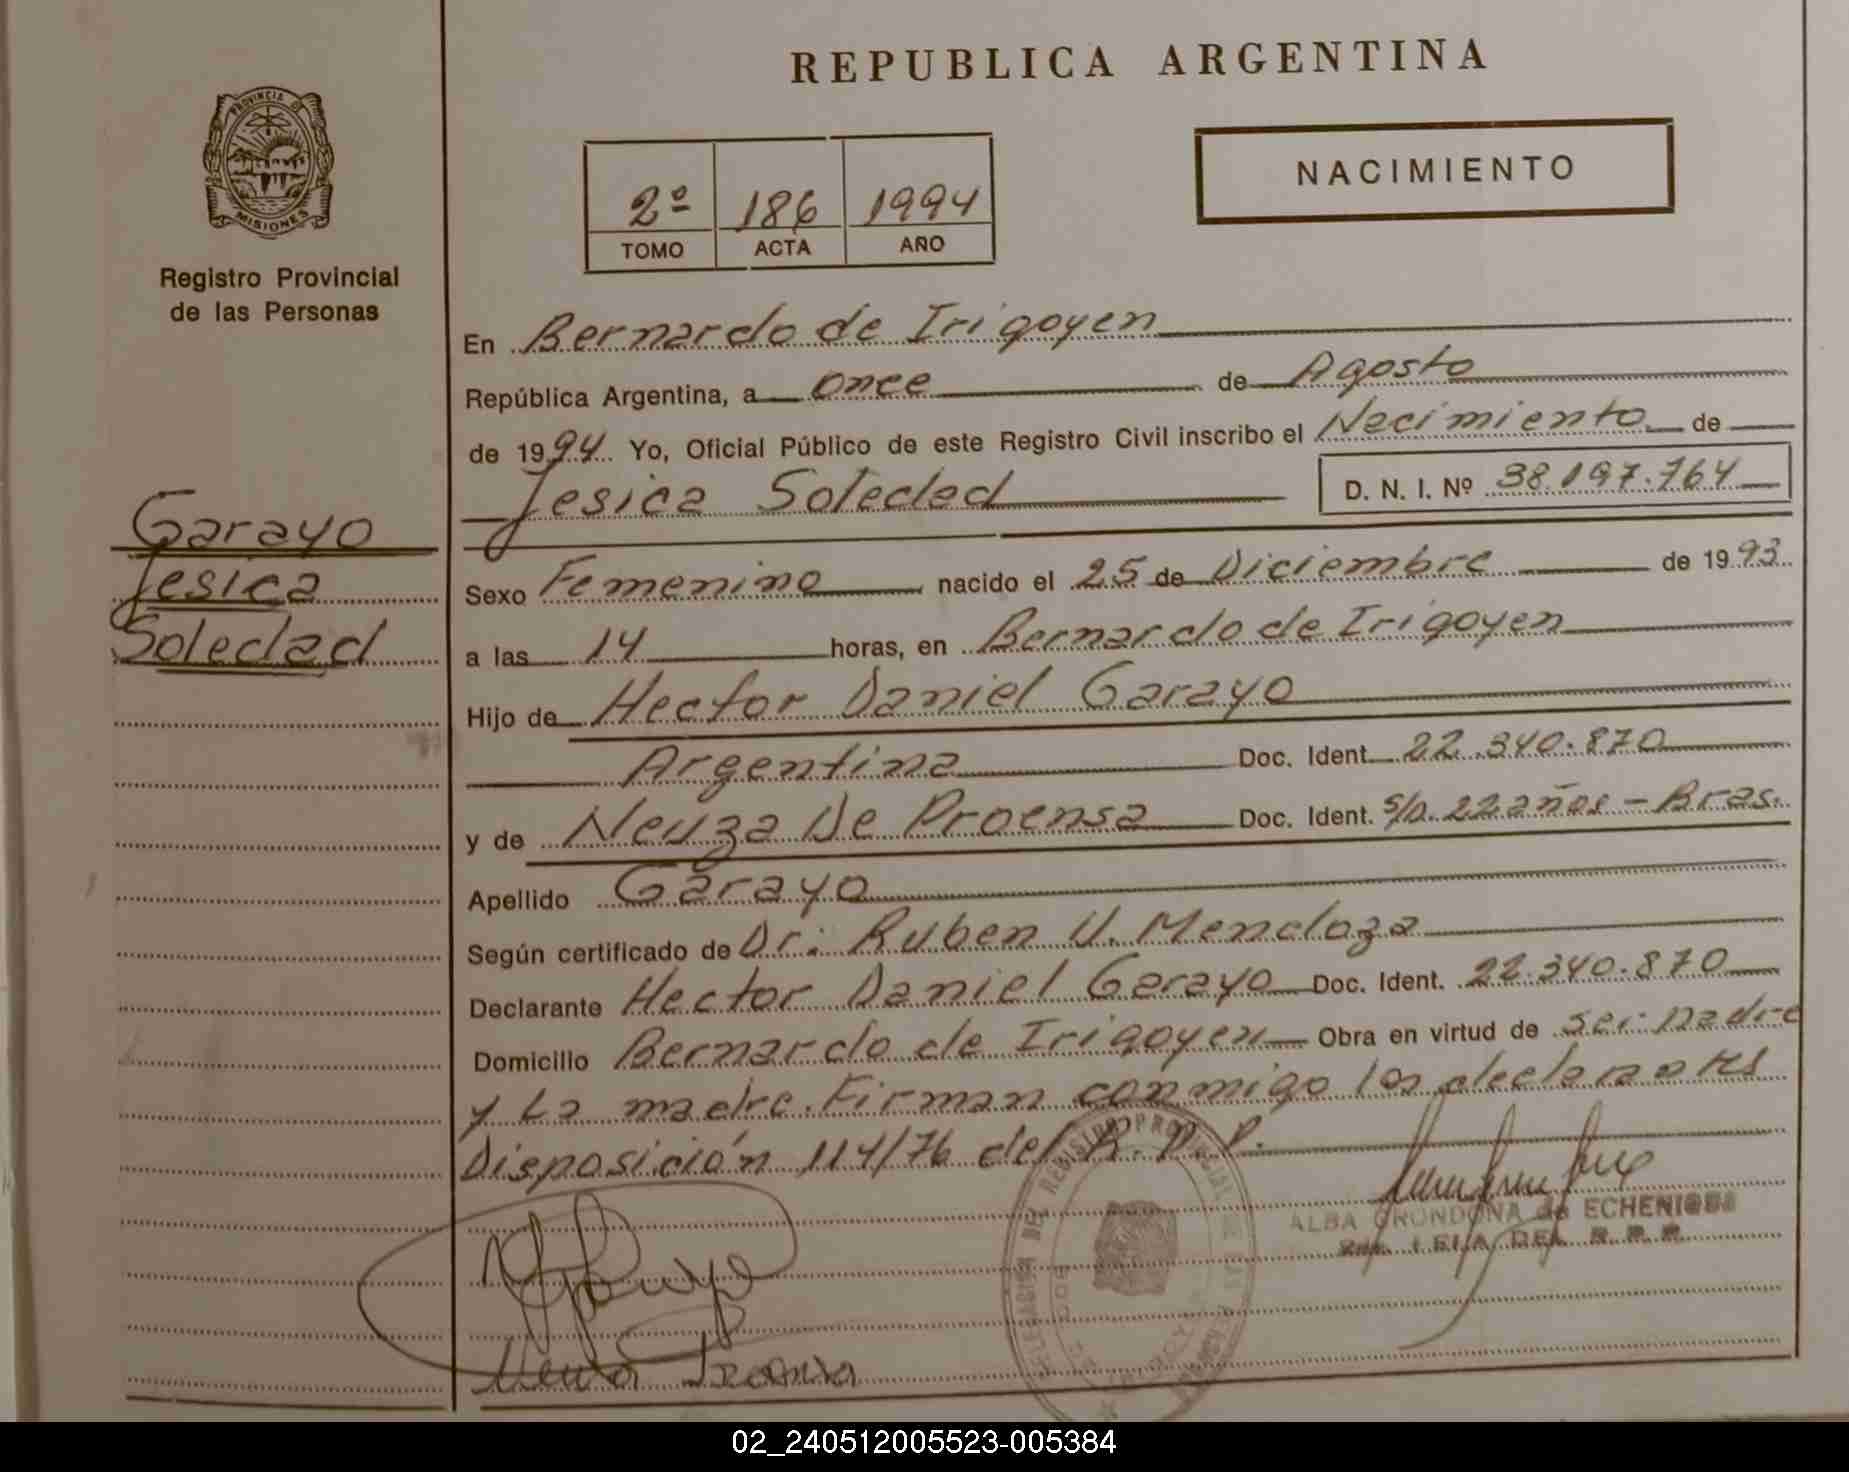 REPUBLICA ARGENTINA
PROVINCIA D
MISIONES
Registro Provincial
de las Personas
2º 186 1994
TOMO ACTA AÑO
NACIMIENTO
En Bernardo de Irigoyen
República Argentina, a once de Agosto
de 1994 Yo, Oficial Público de este Registro Civil inscribo el Nacimiento de
Jesica Soledad D. N. I. Nº 38.197.764
Garayo
Jesica
Soledad
Sexo Femenino nacido el 25 de Diciembre de 1993
a las 14 horas, en Bernardo de Irigoyen
Hijo de Hector Daniel Garayo
Argentina Doc. Ident. 22.340.870
y de Neuza De Proensa Doc. Ident. S/D. 22 años - Bras.
Apellido Garayo
Según certificado de Dr: Ruben U. Mendoza
Declarante Hector Daniel Garayo Doc. Ident. 22.340.870
Domicilio Bernardo de Irigoyen Obra en virtud de ser: Padre
y La madre. Firman conmigo los declarantes
Disposición 114/76 del R. P. P.
ALBA GRONDONA de ECHENIQUE
DEL R. P. P.
DEL REGISTRO PROVINCIAL DE LAS
02_240512005523-005384